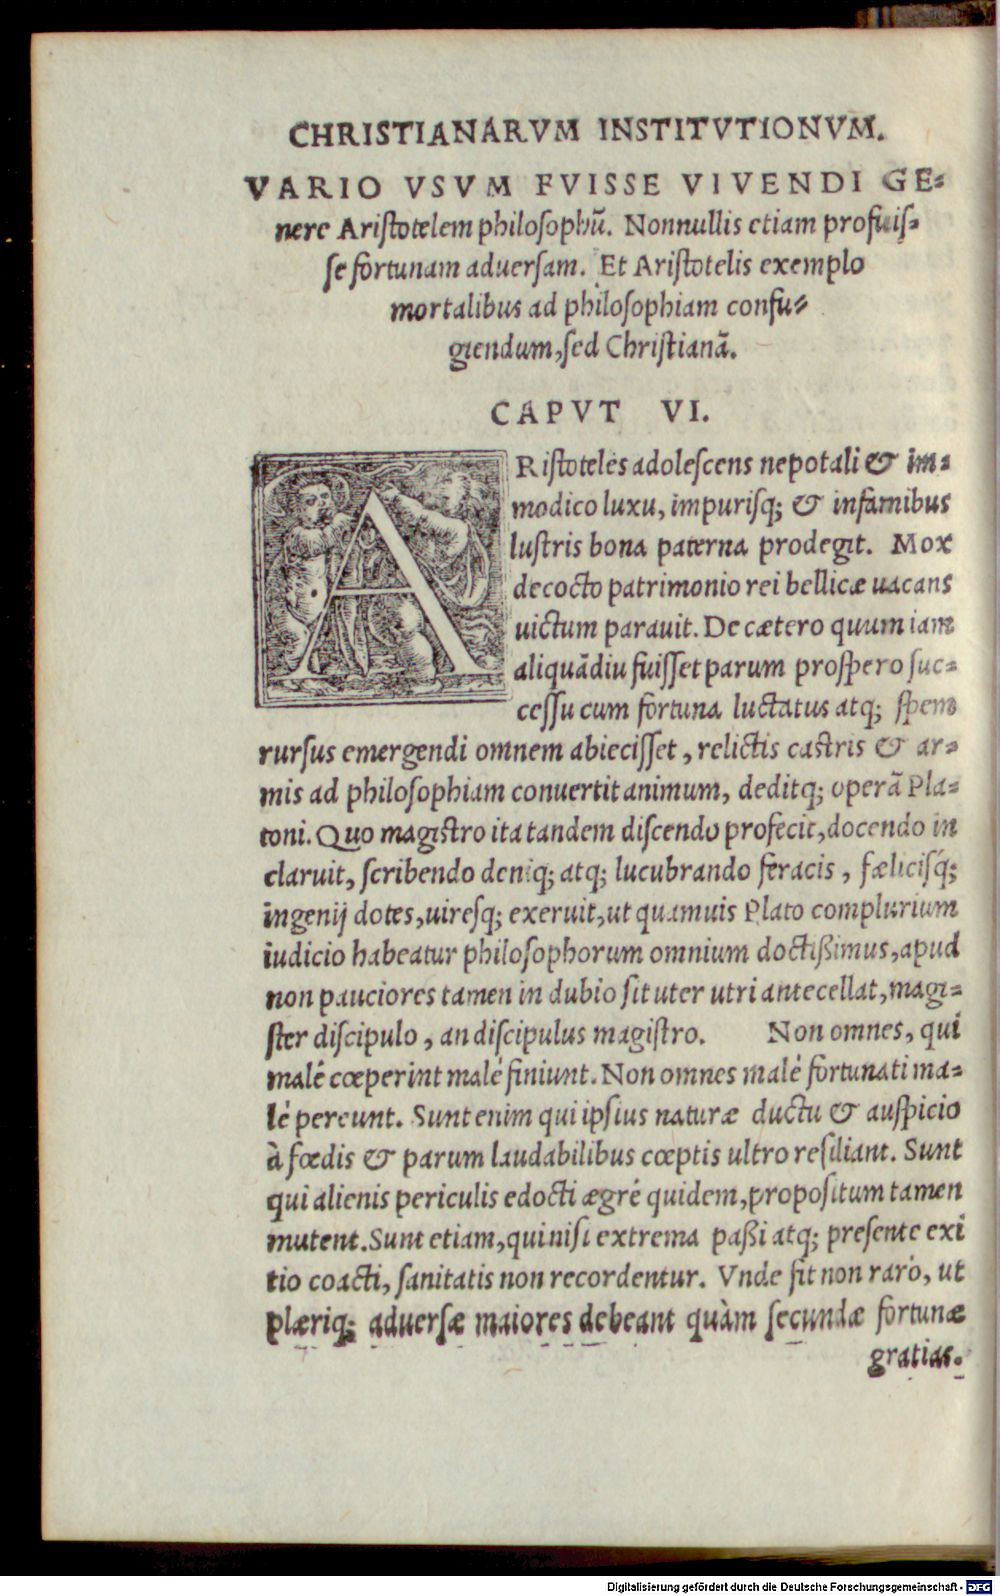 CHRISTIANARVM INSTITVTIONVM.
VARIO VSVM FVISSE VIVENDI GE-
nere Aristotelem philosophū. Nonnullis etiam profuis-
se fortunam aduersam. Et Aristotelis exemplo
mortalibus ad philosophiam confu-
giendum, sed Christianā.
CAPVT VI.
ARistoteles adolescens nepotali & im-
modico luxu, impurisq; & infamibus
lustris bona paterna prodegit. Mox
decocto patrimonio rei bellicæ uacans
uictum parauit. De cætero quum iam
aliquādiu fuisset parum prospero suc-
cessu cum fortuna luctatus atq; spem
rursus emergendi omnem abiecisset, relictis castris & ar-
mis ad philosophiam conuertit animum, deditq; operā Pla-
toni. Quo magistro ita tandem discendo profecit, docendo in
claruit, scribendo deniq; atq; lucubrando feracis, fælicisq́;
ingenij dotes, uiresq; exeruit, ut quamuis Plato complurium
iudicio habeatur philosophorum omnium doctißimus, apud
non pauciores tamen in dubio sit uter utri antecellat, magi-
ster discipulo, an discipulus magistro. Non omnes, qui
malé cœperint malé finiunt. Non omnes malé fortunati ma-
lé pereunt. Sunt enim qui ipsius naturæ ductu & auspicio
à fœdis & parum laudabilibus cœptis ultro resiliant. Sunt
qui alienis periculis edocti ægré quidem, propositum tamen
mutent. Sunt etiam, qui nisi extrema paßi atq; presente exi
tio coacti, sanitatis non recordentur. Vnde fit non raró, ut
plæriq; aduersæ maiores debeant quàm secundæ fortunæ
gratias.
Digitalisierung gefördert durch die Deutsche Forschungsgemeinschaft - DFG